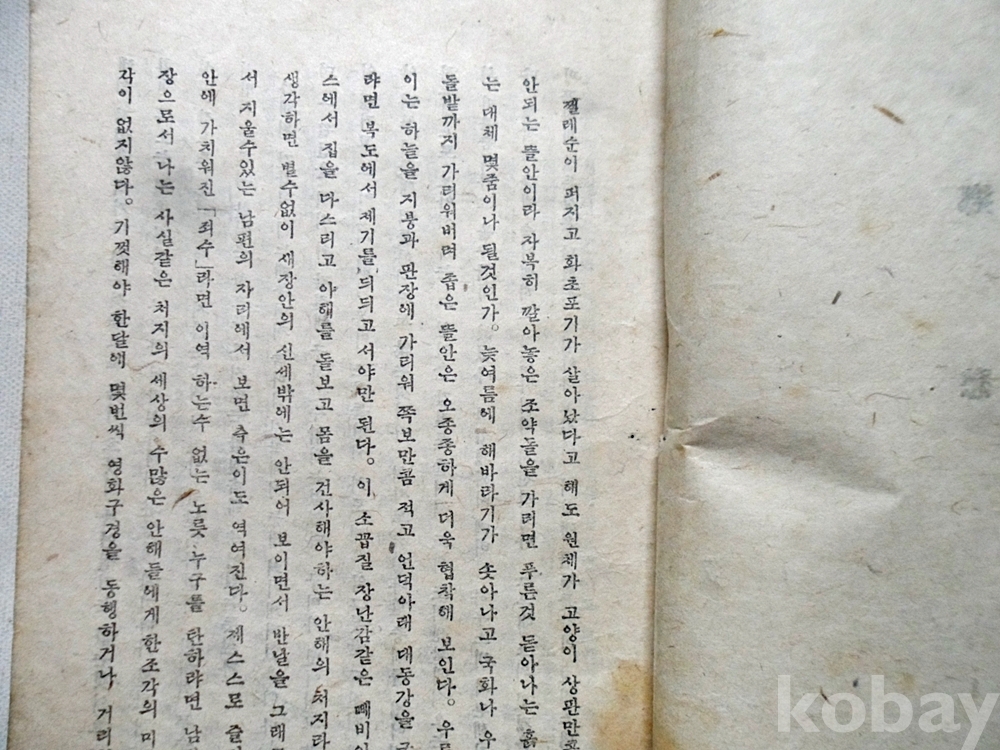 찔레순이 퍼지고 화초포기가 살아났다고 해도 원체가 고양이 상판만
안되는 뜰안이라 자복히 깔아놓은 조약돌을 가리면 푸른것 돋아나는 흙
는 대체 몇줌이나 될것인가。 늦여름에 해바라기가 솟아나고 국화나 우
돌밭까지 가리워버려 좁은 뜰안은 오종종하게 더욱 협착해 보인다。 우
이는 하늘을 지붕과 판장에 가리워 쪽보만콤 적고 언덕아래 대동강을
랴면 복도에서 제기를 듸듸고 서야만 된다。 이 소꼽질 장난감같은
스에서 집을 다스리고 아해를 돌보고 몸을 건사해야하는 안해의 처지라
생각하면 별수없이 새장안의 신세밖에는 안되어 보이면서 반날을 그래
서 지울수있는 남편의 자리에서 보면 측은이도 역여진다。 제스스로 즐
안에 가치워진 「죄수」라면 이역 하는수 없는 노릇 누구를 탄하랴면 남
장으로서 나는 사실같은 처지의 세상의 수많은 안해들에게 한조각의 미
각이 없지않다。 기껏해야 한달에 몇번씩 영화구경을 동행하거나 거리
kobay